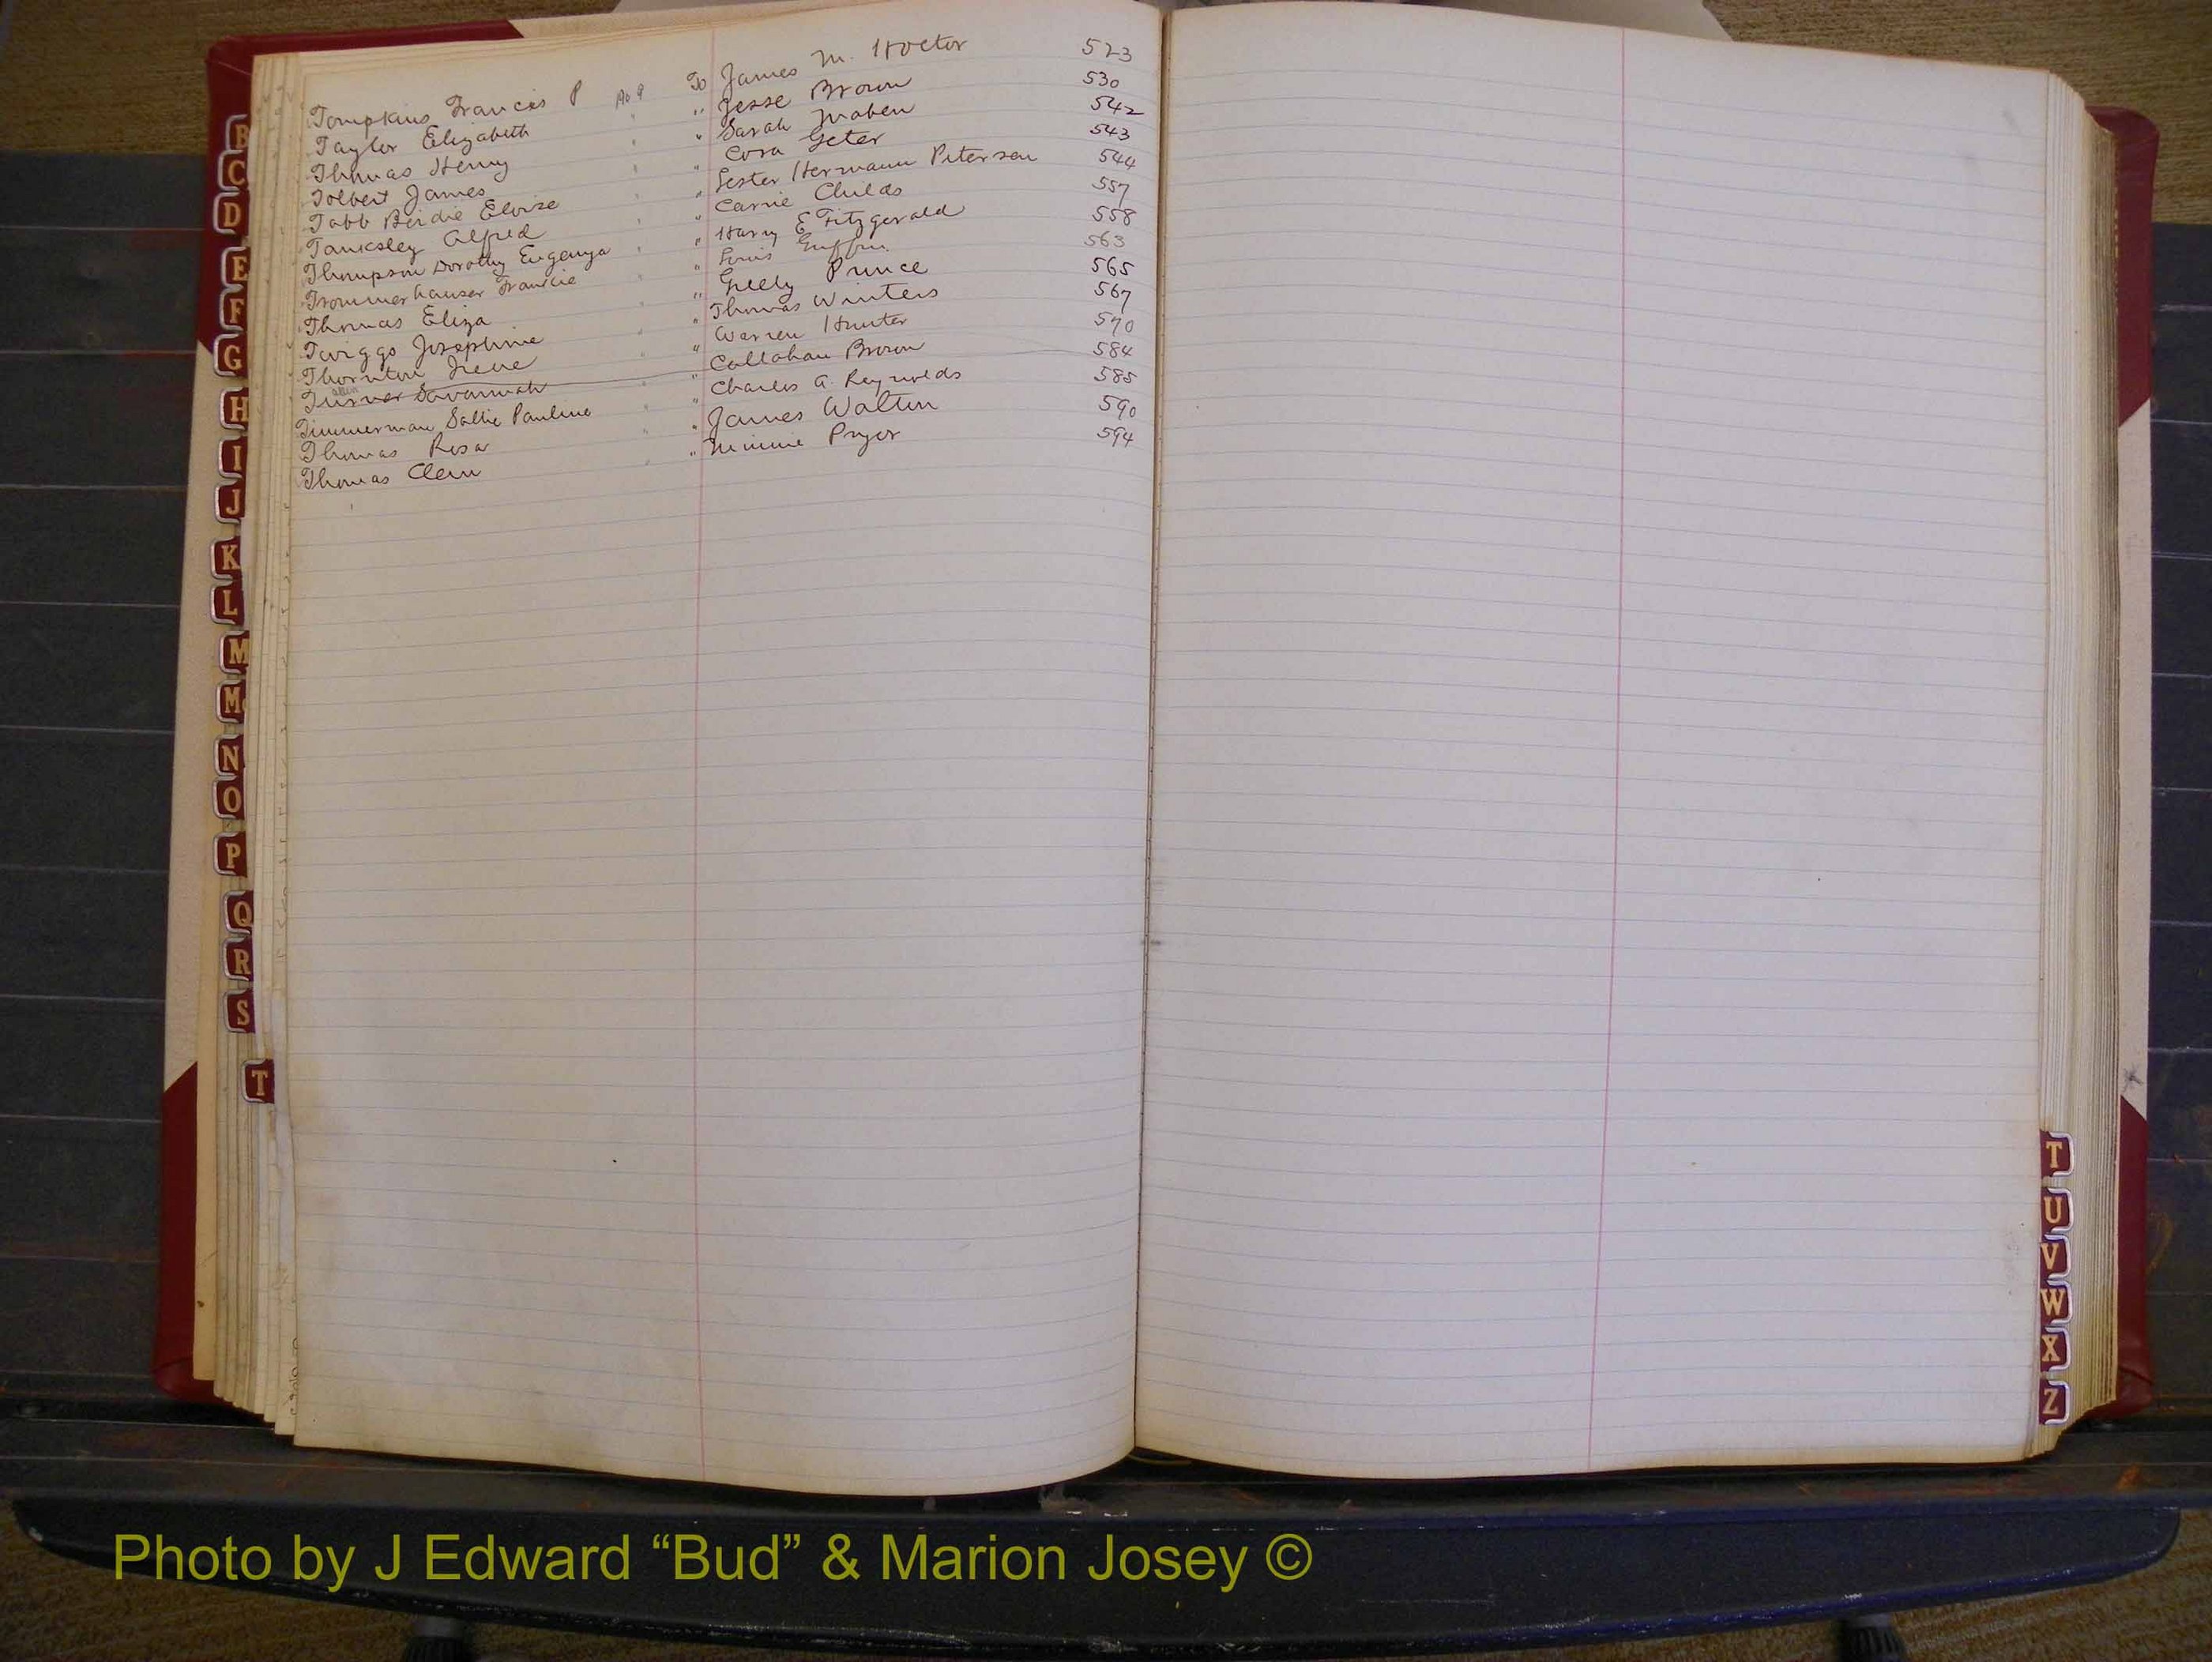 Tompkins Francis P To James M. Hoctor 523
Taylor Elizabeth " Jesse Brown 530
Thomas Henry " Sarah Maben 542
Tolbert James Cora Geter 543
Tabb Birdie Eloise " Lester Hermann Petersen 544
Tanksley Alfred " Carrie Childs 557
Thompson Dorothy Eugenya " Harry E Fitzgerald 558
Trommerhauser Francie " Louis Griffin 563
Thomas Eliza " Greely Prince 565
Twiggs Josephine " Thomas Winters 567
Thornton Irene " Warren Hunter 570
Turner Savannah " Callahan Brown 584
Timmerman Sallie Pauline " Charles A. Reynolds 585
Thomas Rosa " James Walton 590
Thomas Clem " Minnie Pryor 594
B
C
D
E
F
G
H
I
J
K
L
M
Mc
N
O
P
Q
R
S
T
T
U
V
W
X
Z
Photo by J Edward “Bud” & Marion Josey ©